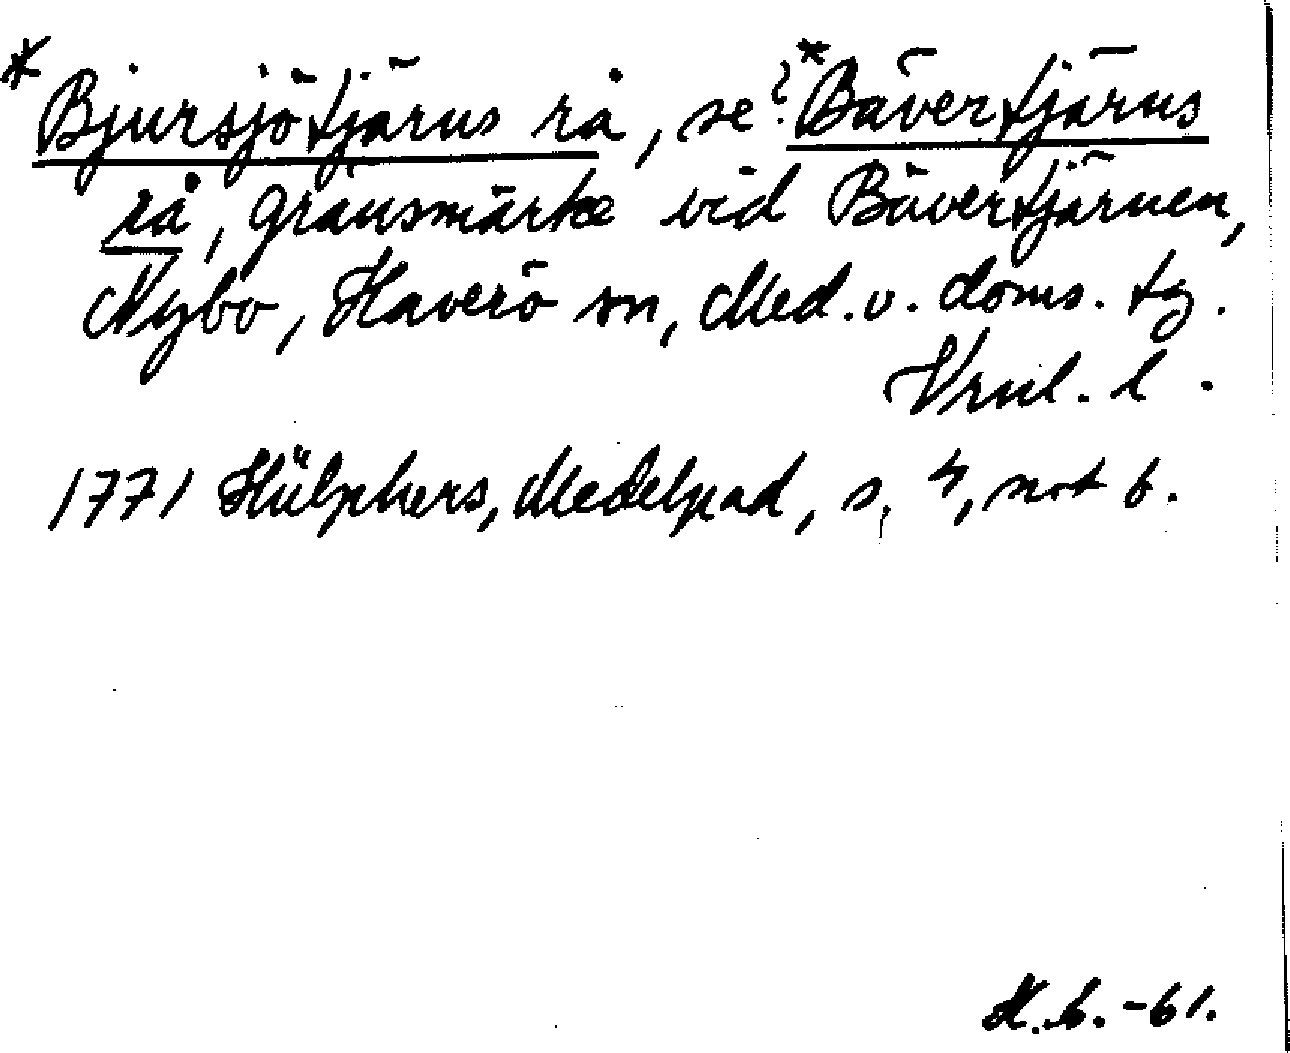 *Bjursjötjärns rå, se ?*Bävertjärns
rå, gränsmärke vid Bävertjärnen,
Nybo, Haverö sn, Med. v. doms. tg.
Vrnl. l.
1771 Hülphers, Medelpad, s. 4, not b.
H.b. -61.